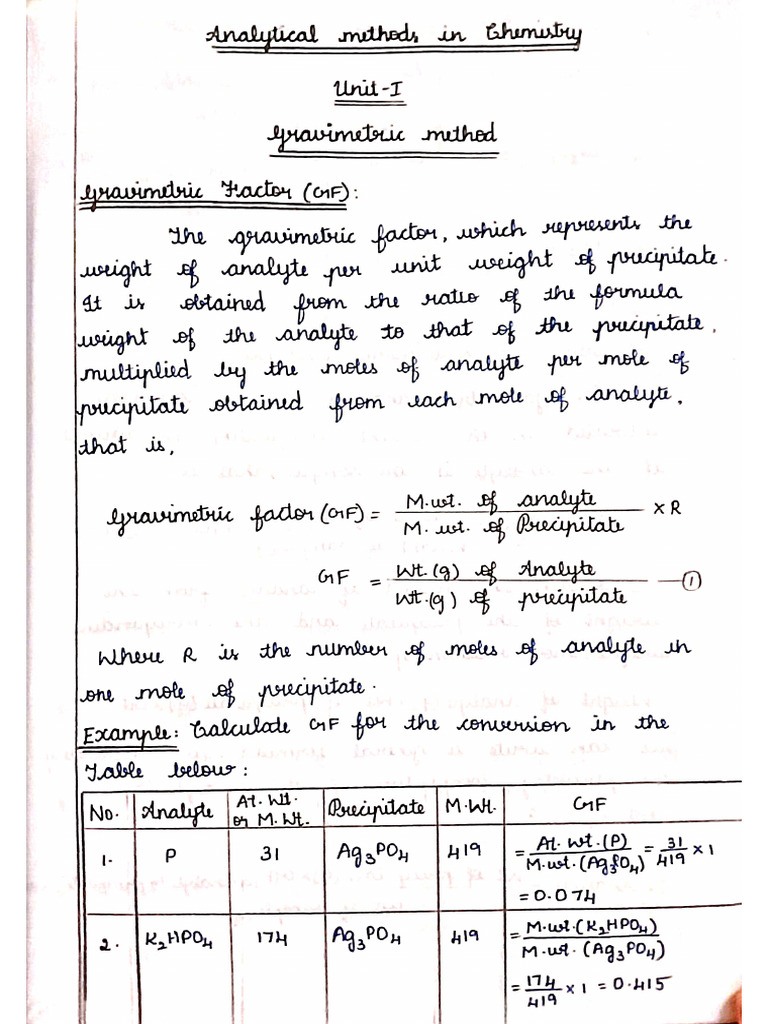 Analytical methods in Chemistry
Unit-I
Gravimetric method
Gravimetric Factor (GF):
The gravimetric factor, which represents the
weight of analyte per unit weight of precipitate.
It is obtained from the ratio of the formula
weight of the analyte to that of the precipitate,
multiplied by the moles of analyte per mole of
precipitate obtained from each mole of analyte,
that is,
Gravimetric factor (GF) = M.wt. of analyte / M. wt. of Precipitate × R
GF = Wt.(g) of Analyte / Wt.(g) of precipitate — ①
Where R is the number of moles of analyte in
one mole of precipitate.
Example: Calculate GF for the conversion in the
Table below:
No. Analyte At. Wt. or M. Wt. Precipitate M.Wt. GF
1. P 31 Ag3PO4 419 = At. wt. (P) / M.wt. (Ag3PO4) = 31/419 × 1
= 0.074
2. K2HPO4 174 Ag3PO4 419 = M.wt. (K2HPO4) / M.wt. (Ag3PO4)
= 174/419 × 1 = 0.415